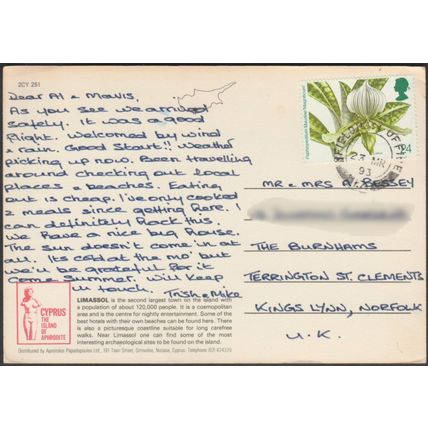 2CY 251
Dear Al & Mavis,
As you see we arrived
safely. It was a good
flight. Welcomed by wind
& rain. Good Start!! Weather
picking up now. Been travelling
around checking out local
places & beaches. Eating
out is cheap. I've only cooked
2 meals since getting here. I
can definitely hack this.
We have a nice big house.
The sun doesn't come in at
all. Its cold at the mo' but
we'll be grateful for it
come summer. Will keep
in touch. Trish & Mike
CYPRUS
THE
ISLAND
OF
APHRODITE
LIMASSOL is the second largest town on the island with
a population of about 120,000 people. It is a cosmopolitan
area and is the centre for nightly entertainment. Some of the
best hotels with their own beaches can be found here. There
is also a picturesque coastline suitable for long carefree
walks. Near Limassol one can find some of the most
interesting archaeological sites to be found on the island.
Distributed by Apostolos Papadopoulos Ltd., Nicosia, Cyprus. Telephone
24
FIELD POST OFFICE
23 MR
93
MR & MRS A. BESSEY
THE BURNHAMS
TERRINGTON ST. CLEMENTS
KINGS LYNN, NORFOLK
U.K.